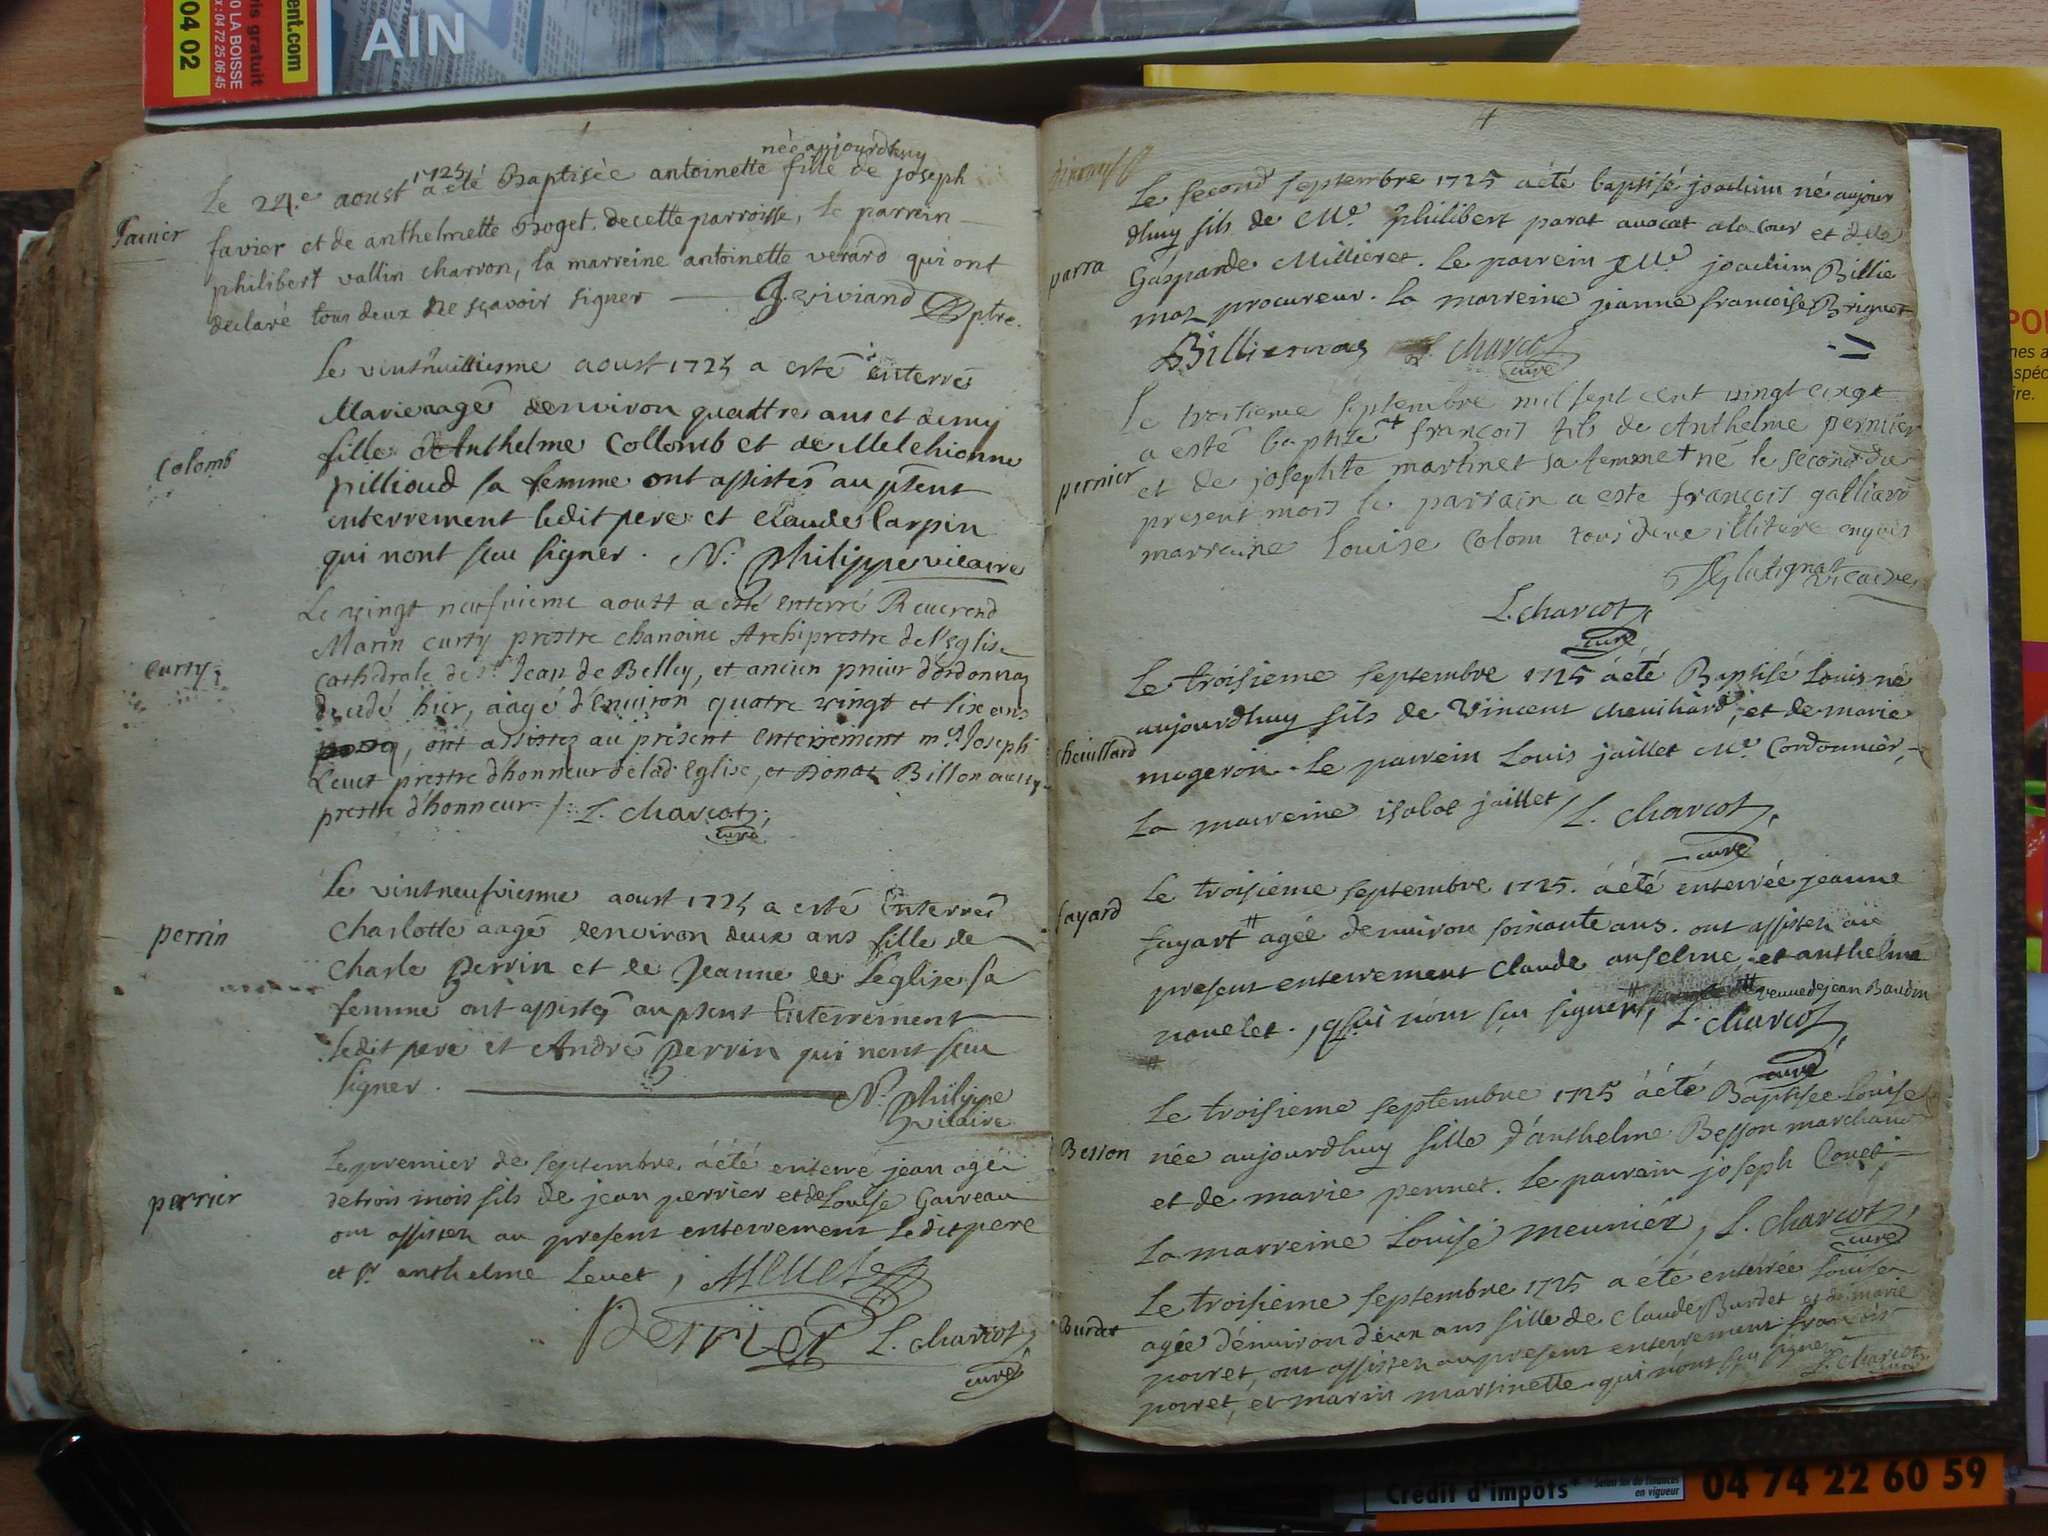 04 02
ent.com
ris gratuit
0 LA BOISSE
x : 04 72 25 06 45
AIN
née aujourdhuy
Le 24.e aoust 1725 a été Baptisée antoinette fille de joseph
favier
favier et de anthelmette Boget. de cette parroisse, le parrein
philibert vallin charron, la marreine antoinette verard qui ont
declaré tous deux ne sçavoir signer J. viviand ptre.
Le vinthuitliesme aoust 1725 a esté enterré
Marie aagé denviron quattre ans et demy
colomb
fille d'Anthelme Collomb et de Melchionne
pillioud sa femme ont assistés au pñsent
enterrement ledit pere et Claude Carpin
qui nont sceu signer. N. philippe vicaire
Le vingt neufvieme aoust a esté enterré Reuerend
Marin curty prestre chanoine Archiprestre de l'Eglise
curty
Cathedrale de St Jean de Belley, et ancien prieur d'ordonnaz
decedé hier, aagé d'Enuiron quatre vingt et six ans
, ont assistez au présent enterrement mre Joseph
Leuet prestre d'honneur de lad. Eglise, et Donat Billon aussy
prestre d'honneur /: L. Charcot,
curé
Le vintneufviesme aoust 1725 a esté Enterrés
perrin
Charlotte aagé denviron deux ans fille de
Charle perrin et de Jeanne de Leglise sa
femme ont assistés au pñsent Enterrement
ledit pere et André perrin qui nont sceu
signer. N. philippe
vicaire
Le premier de septembre a été enterré jean agé
perrier
de trois mois fils de jean perrier et de Louise Garreau
ont assisten au present enterrement ledit pere
et Sr. anthelme Levet,
Perrier L. charcot,
curé
Le second septembre 1725 a été baptisé joachim né aujour
dhuy fils de Me. philibert parat avocat a la cour et de de
parra
Gasparde Millieret. Le parrein Me. joachim Billie
maz procureur. La marreine jeanne francoise Brignet
Billiemaz L. charcot
curé
Le troisieme septembre mil sept cent vingt cinq
a esté baptizé françois fils de Anthelme pernier
pernier
et de josephte martinet sa femme + né le second du
present mois le parrain a este françois galliard
marraine Louise Colom tous deux illitere enquis
vicaire
L. charcot,
curé
Le troisieme septembre 1725 a été Baptisé Louis né
aujourdhuy fils de Vincent chevilliard, et de marie
chevillard
mugeron. Le parrein Louis jaillet Me. Cordonnier,
La marreine isabot jaillet / L. charcot,
curé
Le troisieme septembre 1725. a été enterrée jeanne
fayard
fayart # agée denuiron soixante ans. ont assisten au
present enterrement Claude anselme et anthelme
nouelet. qui n'ont sçu signer, # veuve de jean Baudin
L. charcot,
curé
Le troisieme septembre 1725 a été Baptisée Louise
Besson
née aujourdhuy fille d'anthelme Besson marchand
et de marie pennet. Le parrein joseph Couet
La marreine Louise meunier, L. charcot,
curé
Le troisieme septembre 1725 a été enterrée Louise
Burdet
agée d'enuiron deux ans fille de Claude Burdet et de marie
poiret, ont assisten au present enterrement françois
poiret, et marin martinette qui nont sçu signer
L. charcot
curé
Crédit d'impôts*
en vigueur
04 74 22 60 59